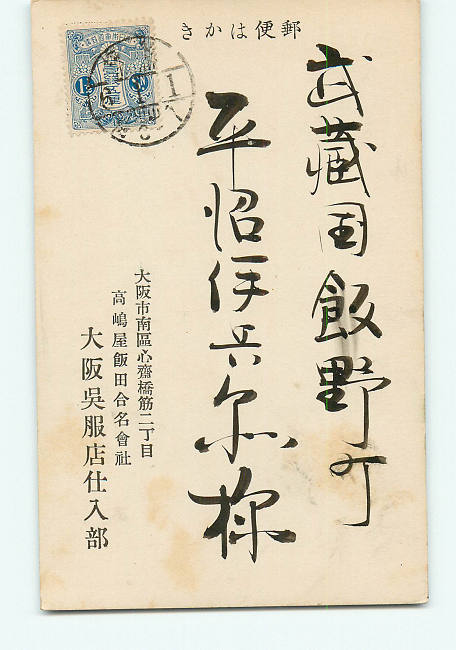 郵便はかき
武藏国飯野町
平沼伊兵衛様
大阪市南區心齋橋筋二丁目
高嶋屋飯田合名會社
大阪吳服店仕入部